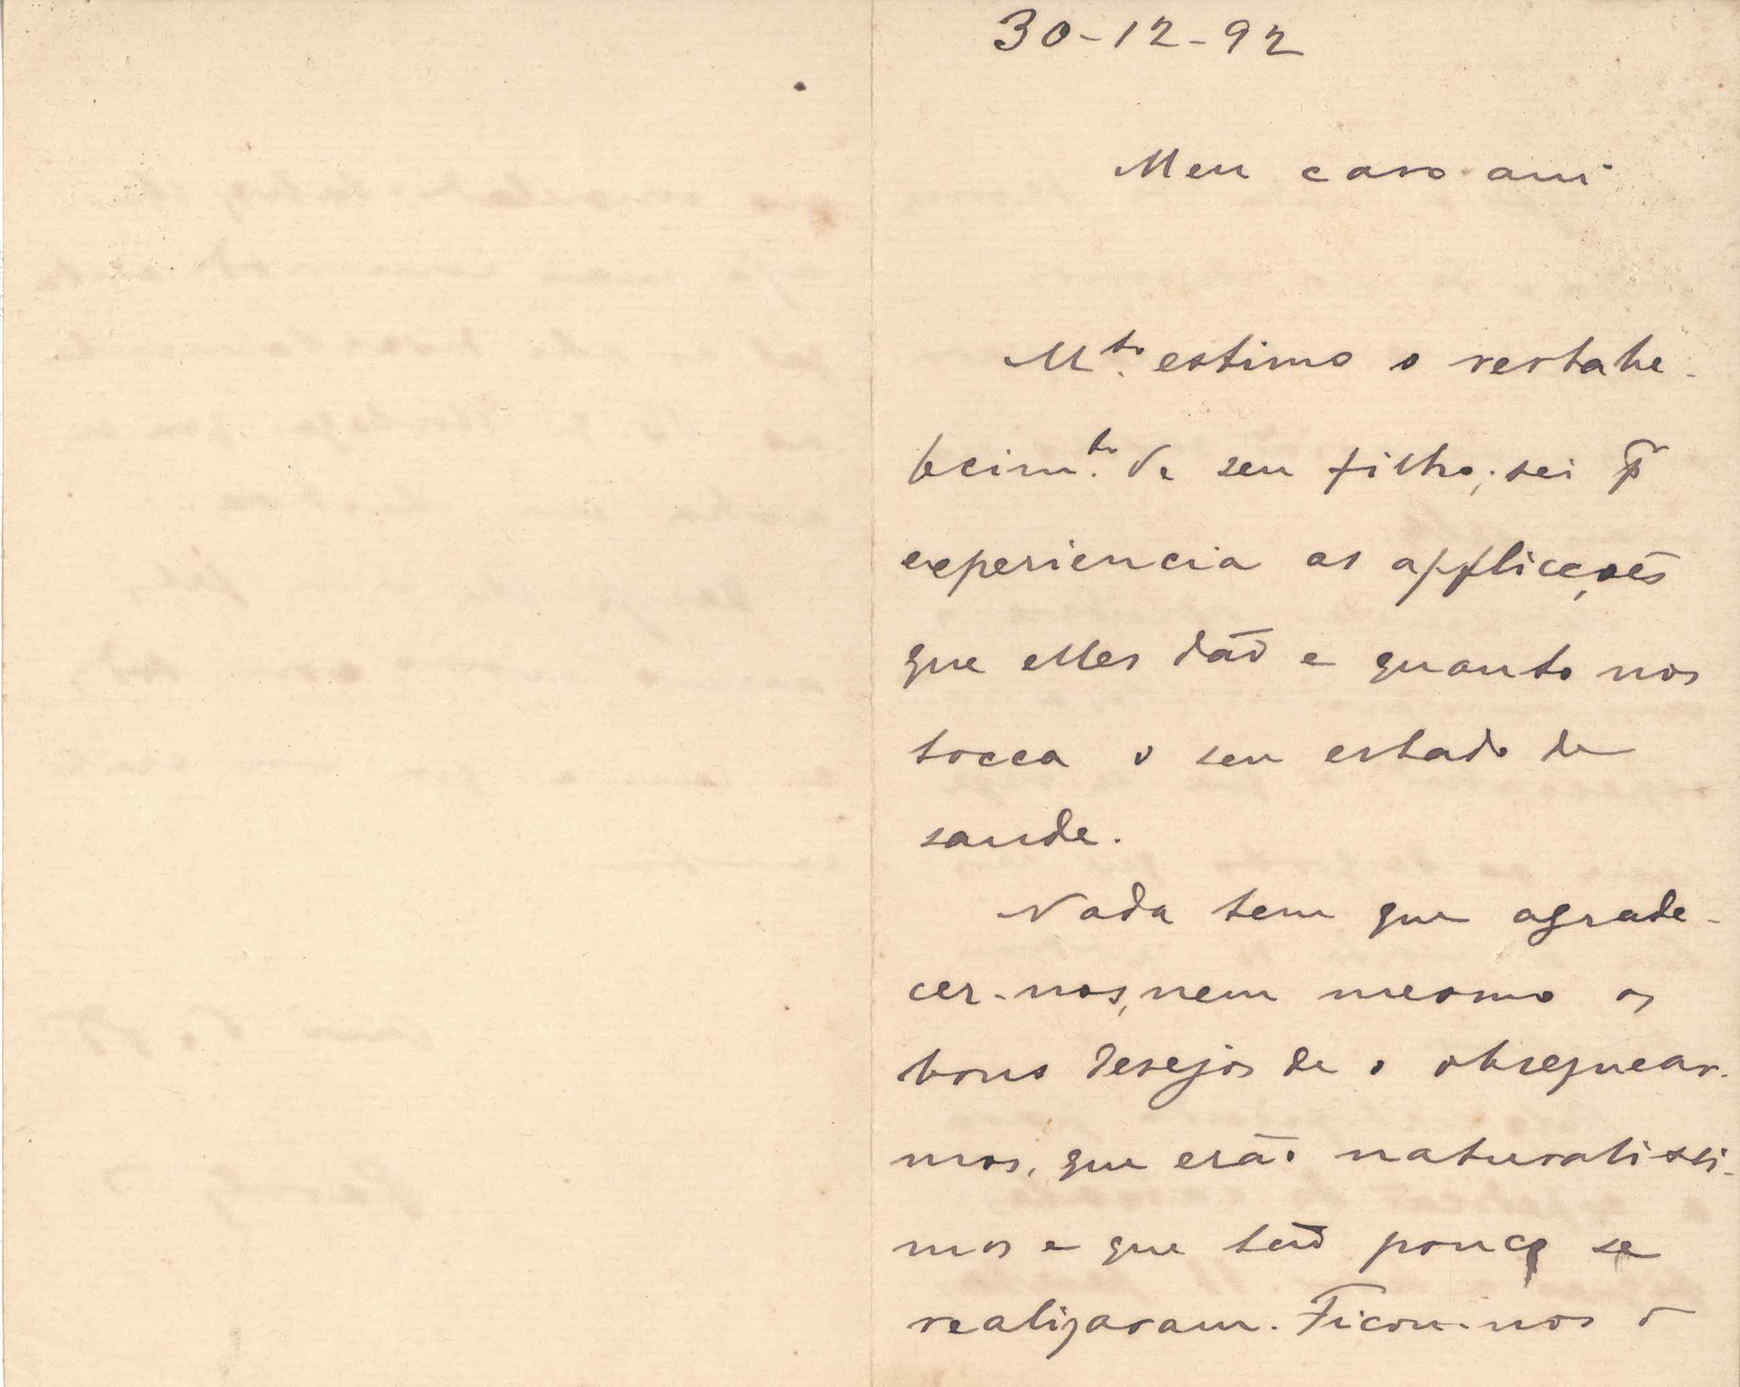 30-12-92
Meu caro am.º
M.to estimo o restabe-
lecim.to de seu filho; sei p̃
experiencia as afflicções
que elles dão e quanto nos
tocca o seu estado de
saude.
Nada tem que agrade-
cer-nos, nem mesmo os
bons desejos de o obsequear-
mos, que erão naturalissi-
mos e que tão pouco se
realizaram. Ficou-nos o